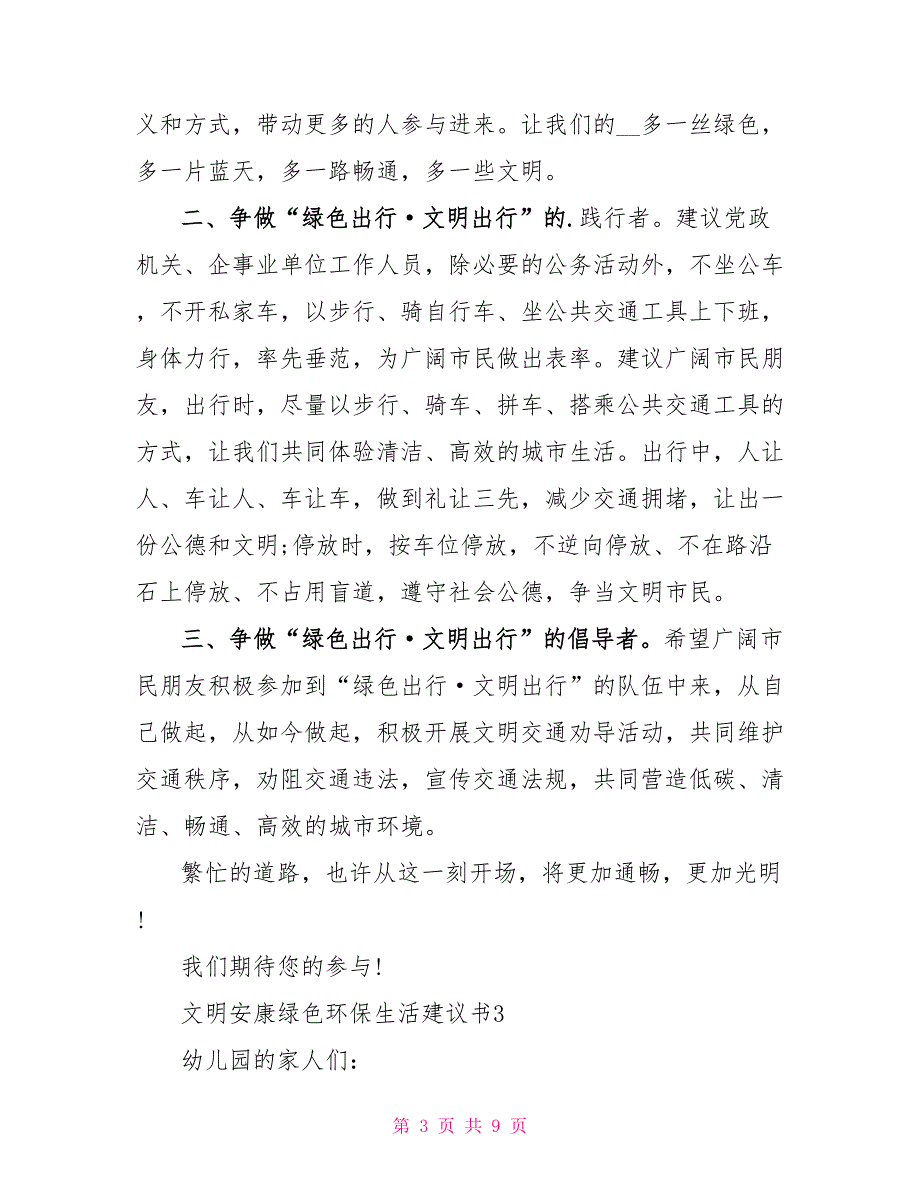 义和方式，带动更多的人参与进来。让我们的__多一丝绿色，
多一片蓝天，多一路畅通，多一些文明。
二、争做“绿色出行·文明出行”的.践行者。建议党政
机关、企事业单位工作人员，除必要的公务活动外，不坐公车
，不开私家车，以步行、骑自行车、坐公共交通工具上下班，
身体力行，率先垂范，为广阔市民做出表率。建议广阔市民朋
友，出行时，尽量以步行、骑车、拼车、搭乘公共交通工具的
方式，让我们共同体验清洁、高效的城市生活。出行中，人让
人、车让人、车让车，做到礼让三先，减少交通拥堵，让出一
份公德和文明;停放时，按车位停放，不逆向停放、不在路沿
石上停放、不占用盲道，遵守社会公德，争当文明市民。
三、争做“绿色出行·文明出行”的倡导者。希望广阔市
民朋友积极参加到“绿色出行·文明出行”的队伍中来，从自
己做起，从如今做起，积极开展文明交通劝导活动，共同维护
交通秩序，劝阻交通违法，宣传交通法规，共同营造低碳、清
洁、畅通、高效的城市环境。
繁忙的道路，也许从这一刻开场，将更加通畅，更加光明
!
我们期待您的参与!
文明安康绿色环保生活建议书3
幼儿园的家人们：
第 3 页 共 9 页